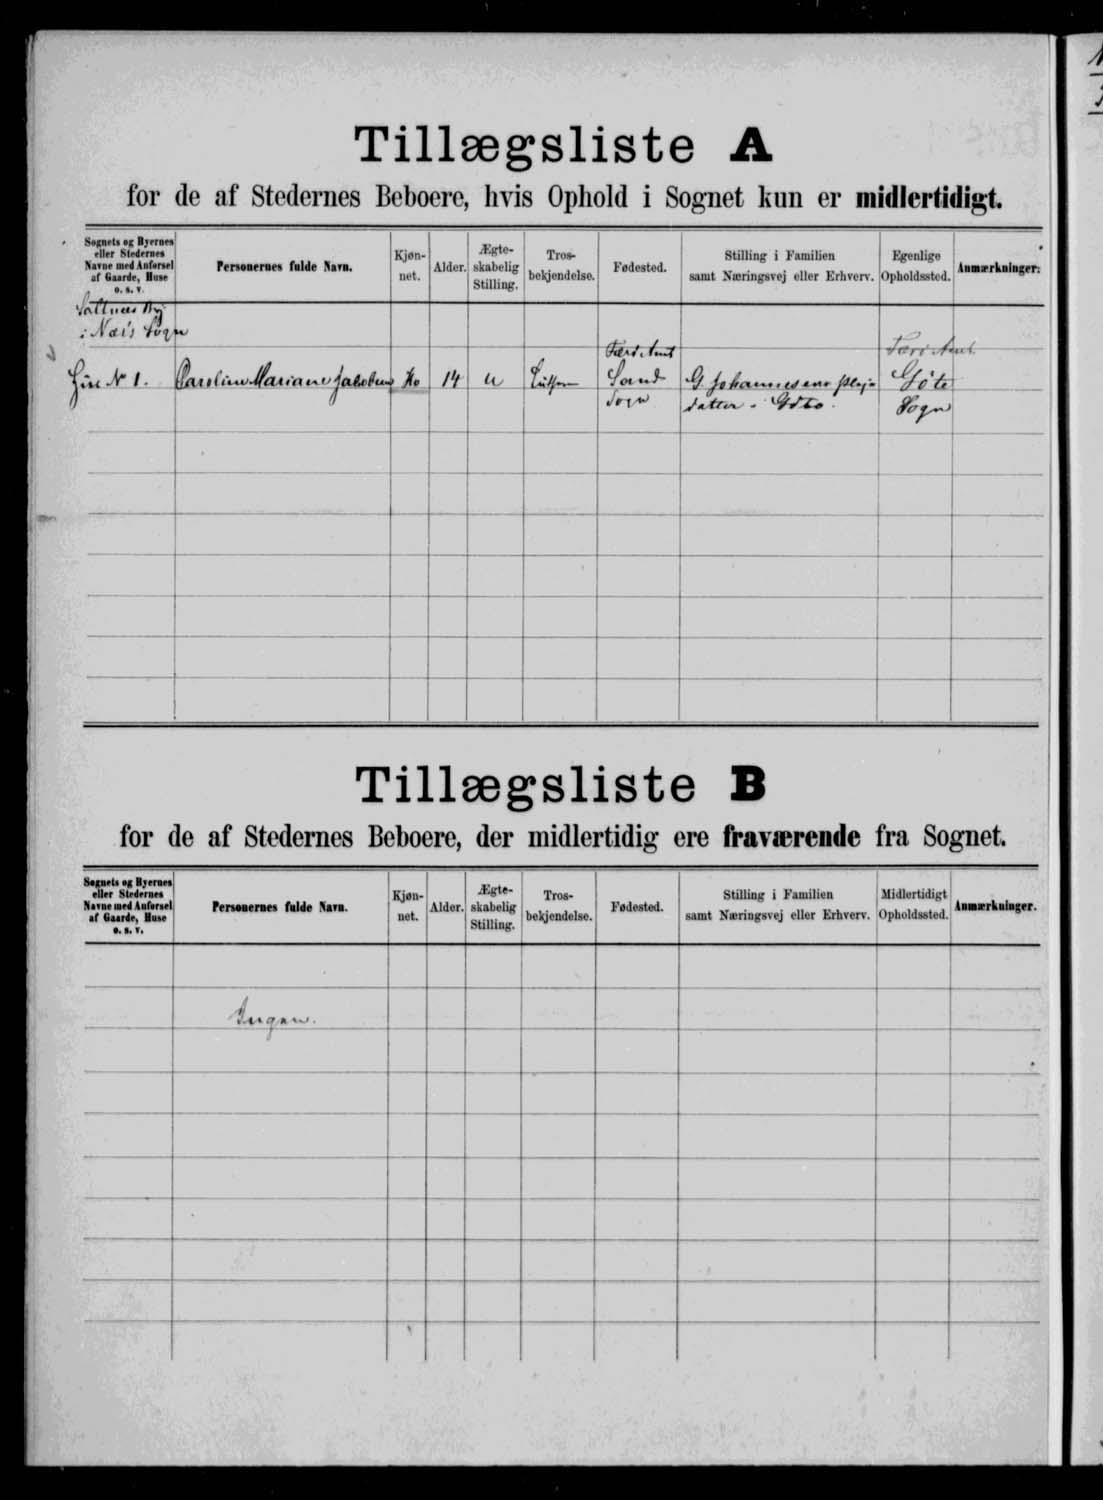 Tillægsliste A
for de af Stedernes Beboere, hvis Ophold i Sognet kun er midlertidigt.
Sognets og Byernes
eller Stedernes
Navne med Anførsel
af Gaarde, Huse
o. s. v.
Personernes fulde Navn.
Kjøn-
net.
Alder.
Ægte-
skabelig
Stilling.
Tros-
bekjendelse.
Fødested.
Stilling i Familien
samt Næringsvej eller Erhverv.
Egenlige
Opholdssted.
Anmærkninger.
Saltnæs By
i Næs Sogn
Hus No 1.
Caroline Mariane Jakobsen
Ko
14
u
Luthersk
Færø Amt
Sand
Sogn
G. Johannesens Plej-
datter
Færø Amt
Gøte
Sogn
Tillægsliste B
for de af Stedernes Beboere, der midlertidig ere fraværende fra Sognet.
Sognets og Byernes
eller Stedernes
Navne med Anførsel
af Gaarde, Huse
o. s. v.
Personernes fulde Navn.
Kjøn-
net.
Alder.
Ægte-
skabelig
Stilling.
Tros-
bekjendelse.
Fødested.
Stilling i Familien
samt Næringsvej eller Erhverv.
Midlertidigt
Opholdssted.
Anmærkninger.
Ingen.